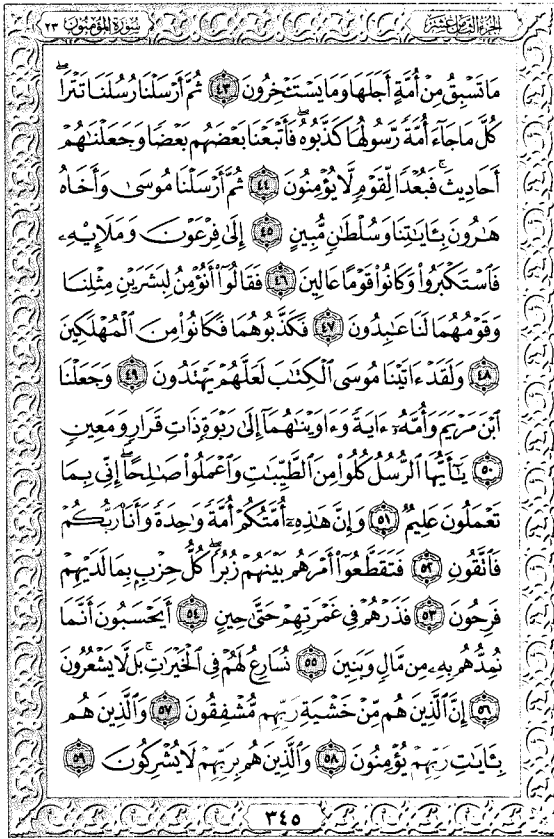 الجزء الثامن عشر
سورة المؤمنون ٢٣
مَا تَسْبِقُ مِنْ أُمَّةٍ أَجَلَهَا وَمَا يَسْتَـْٔخِرُونَ ٤٣ ثُمَّ أَرْسَلْنَا رُسُلَنَا تَتْرَاۖ
كُلَّ مَا جَآءَ أُمَّةً رَّسُولُهَا كَذَّبُوهُۖ فَأَتْبَعْنَا بَعْضَهُم بَعْضًا وَجَعَلْنَٰهُمْ
أَحَادِيثَۚ فَبُعْدًا لِّقَوْمٍ لَّا يُؤْمِنُونَ ٤٤ ثُمَّ أَرْسَلْنَا مُوسَىٰ وَأَخَاهُ
هَٰرُونَ بِـَٔايَٰتِنَا وَسُلْطَٰنٍ مُّبِينٍ ٤٥ إِلَىٰ فِرْعَوْنَ وَمَلَإِي۟هِۦ
فَٱسْتَكْبَرُوا۟ وَكَانُوا۟ قَوْمًا عَالِينَ ٤٦ فَقَالُوٓا۟ أَنُؤْمِنُ لِبَشَرَيْنِ مِثْلِنَا
وَقَوْمُهُمَا لَنَا عَٰبِدُونَ ٤٧ فَكَذَّبُوهُمَا فَكَانُوا۟ مِنَ ٱلْمُهْلَكِينَ
٤٨ وَلَقَدْ ءَاتَيْنَا مُوسَى ٱلْكِتَٰبَ لَعَلَّهُمْ يَهْتَدُونَ ٤٩ وَجَعَلْنَا
ٱبْنَ مَرْيَمَ وَأُمَّهُۥٓ ءَايَةً وَءَاوَيْنَٰهُمَآ إِلَىٰ رَبْوَةٍ ذَاتِ قَرَارٍ وَمَعِينٍ
٥٠ يَٰٓأَيُّهَا ٱلرُّسُلُ كُلُوا۟ مِنَ ٱلطَّيِّبَٰتِ وَٱعْمَلُوا۟ صَٰلِحًاۖ إِنِّى بِمَا
تَعْمَلُونَ عَلِيمٌ ٥١ وَإِنَّ هَٰذِهِۦٓ أُمَّتُكُمْ أُمَّةً وَٰحِدَةً وَأَنَا۠ رَبُّكُمْ
فَٱتَّقُونِ ٥٢ فَتَقَطَّعُوٓا۟ أَمْرَهُم بَيْنَهُمْ زُبُرًاۖ كُلُّ حِزْبٍۭ بِمَا لَدَيْهِمْ
فَرِحُونَ ٥٣ فَذَرْهُمْ فِى غَمْرَتِهِمْ حَتَّىٰ حِينٍ ٥٤ أَيَحْسَبُونَ أَنَّمَا
نُمِدُّهُم بِهِۦ مِن مَّالٍ وَبَنِينَ ٥٥ نُسَارِعُ لَهُمْ فِى ٱلْخَيْرَٰتِۚ بَل لَّا يَشْعُرُونَ
٥٦ إِنَّ ٱلَّذِينَ هُم مِّنْ خَشْيَةِ رَبِّهِم مُّشْفِقُونَ ٥٧ وَٱلَّذِينَ هُم
بِـَٔايَٰتِ رَبِّهِمْ يُؤْمِنُونَ ٥٨ وَٱلَّذِينَ هُم بِرَبِّهِمْ لَا يُشْرِكُونَ ٥٩
٣٤٥